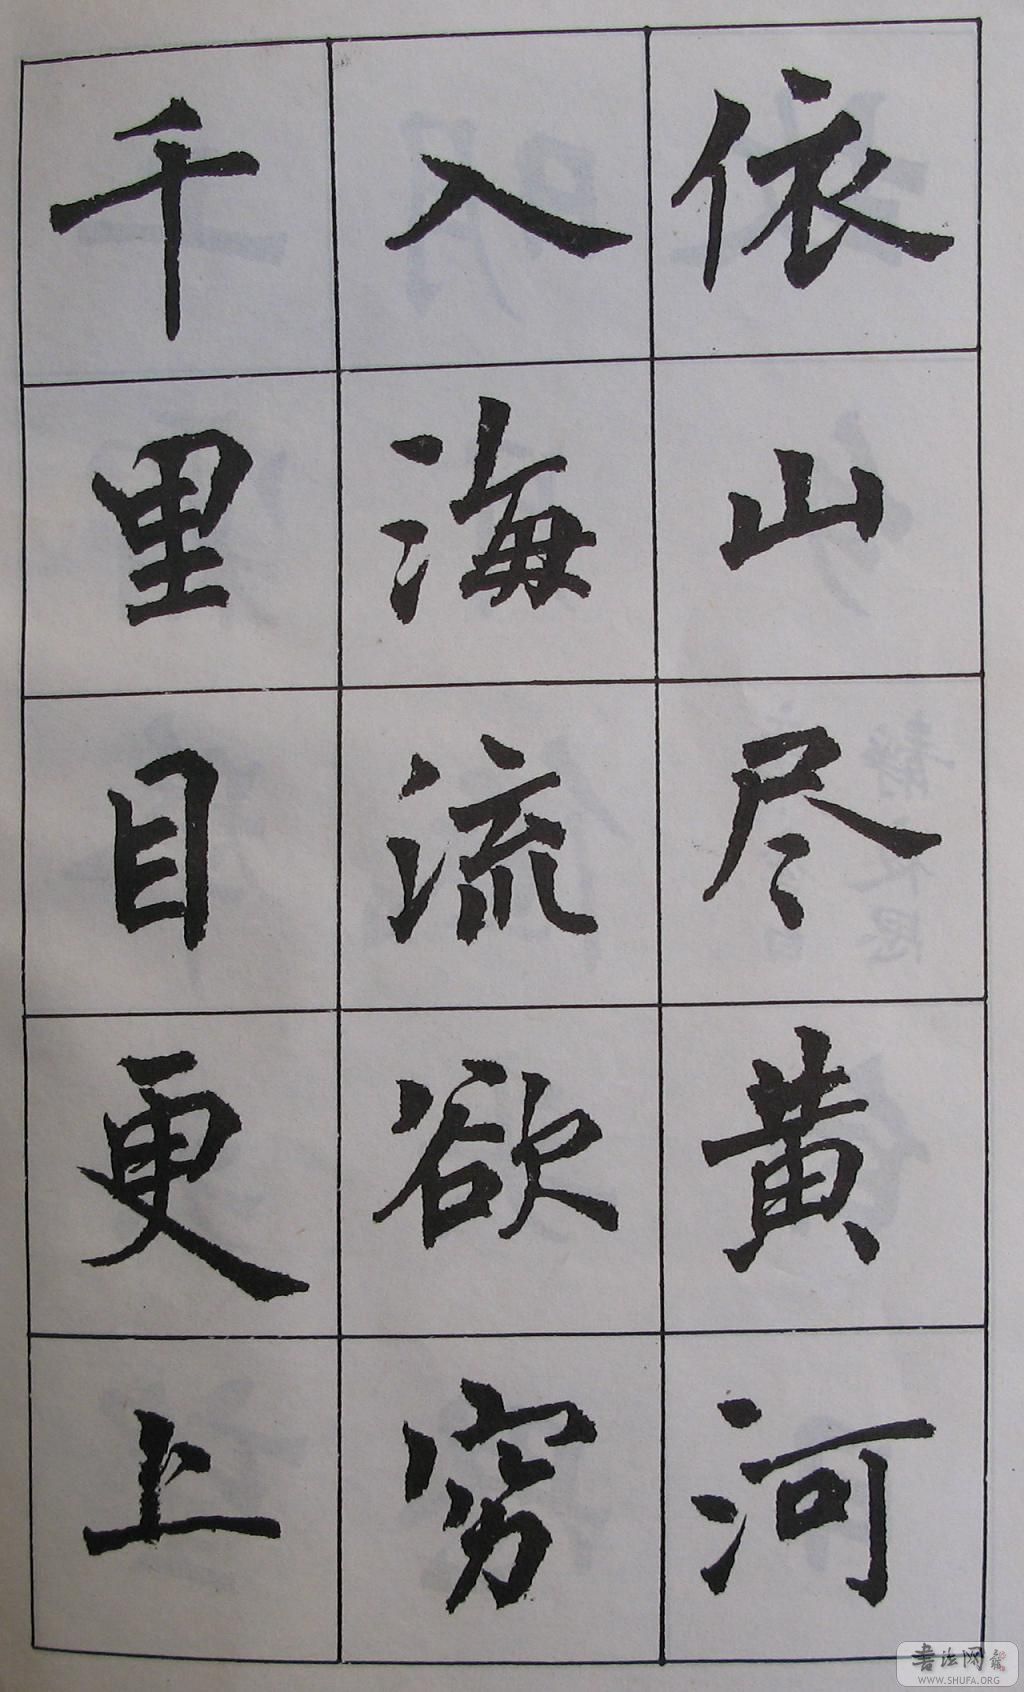 依山尽黄河
入海流欲穷
千里目更上
书法网
WWW.SHUFA.ORG